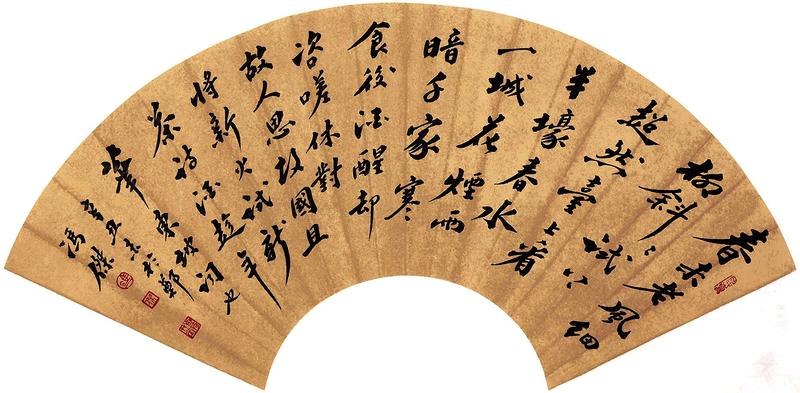 春未老風細
柳斜〻試上
超然臺上看
半壕春水
一城花煙雨
暗千家寒
食後酒醒却
咨嗟休對
故人思故國且
將新火試新
茶詩酒趁年
華東坡詞也
辛丑末於鄭
馮傑